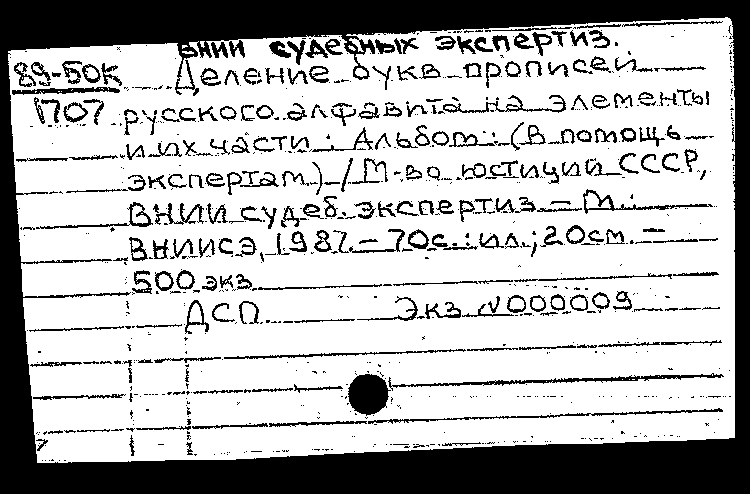 ВНИИ судебных экспертиз.
89-50К Деление букв прописей
1707 русского алфавита на элементы
и их части : Альбом : (В помощь
экспертам) / М-во юстиций СССР,
ВНИИ судеб. экспертиз. – М. :
ВНИИСЭ, 1987. – 70с. : ил. ; 20см. –
500 экз
ДСП. Экз №000009